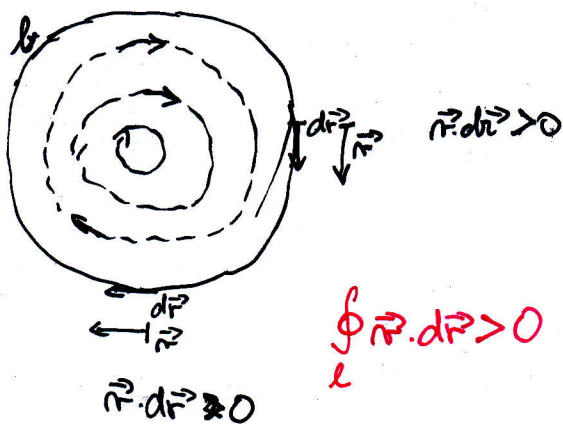 l
dr⃗
v⃗
v⃗.dr⃗ > 0
dr⃗
v⃗
∮ v⃗.dr⃗ > 0
l
v⃗.dr⃗ > 0